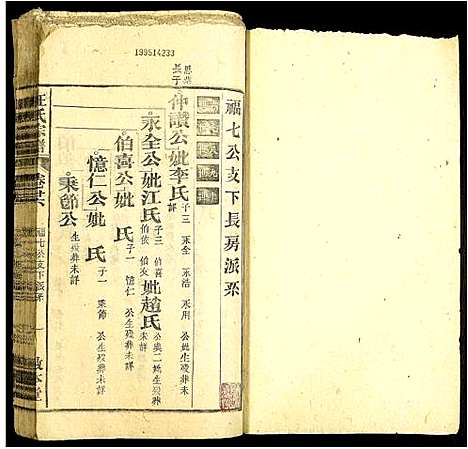 199514233
福七公支下長房派系
思榮
長子
仲讚公妣李氏 子三 永全 永浩 永用 公妣生殁葬未
詳
永全公妣江氏 子三 伯喜 伯友 妣趙氏 公與二妣生殁葬
伯依 未詳
伯喜公妣 氏 子一 憶仁 公生殁葬未詳
憶仁公妣 氏 子一 秉節 公生殁葬未詳
秉節公 生殁葬未詳
汪氏宗譜
福七公支下派系
一
敦本堂